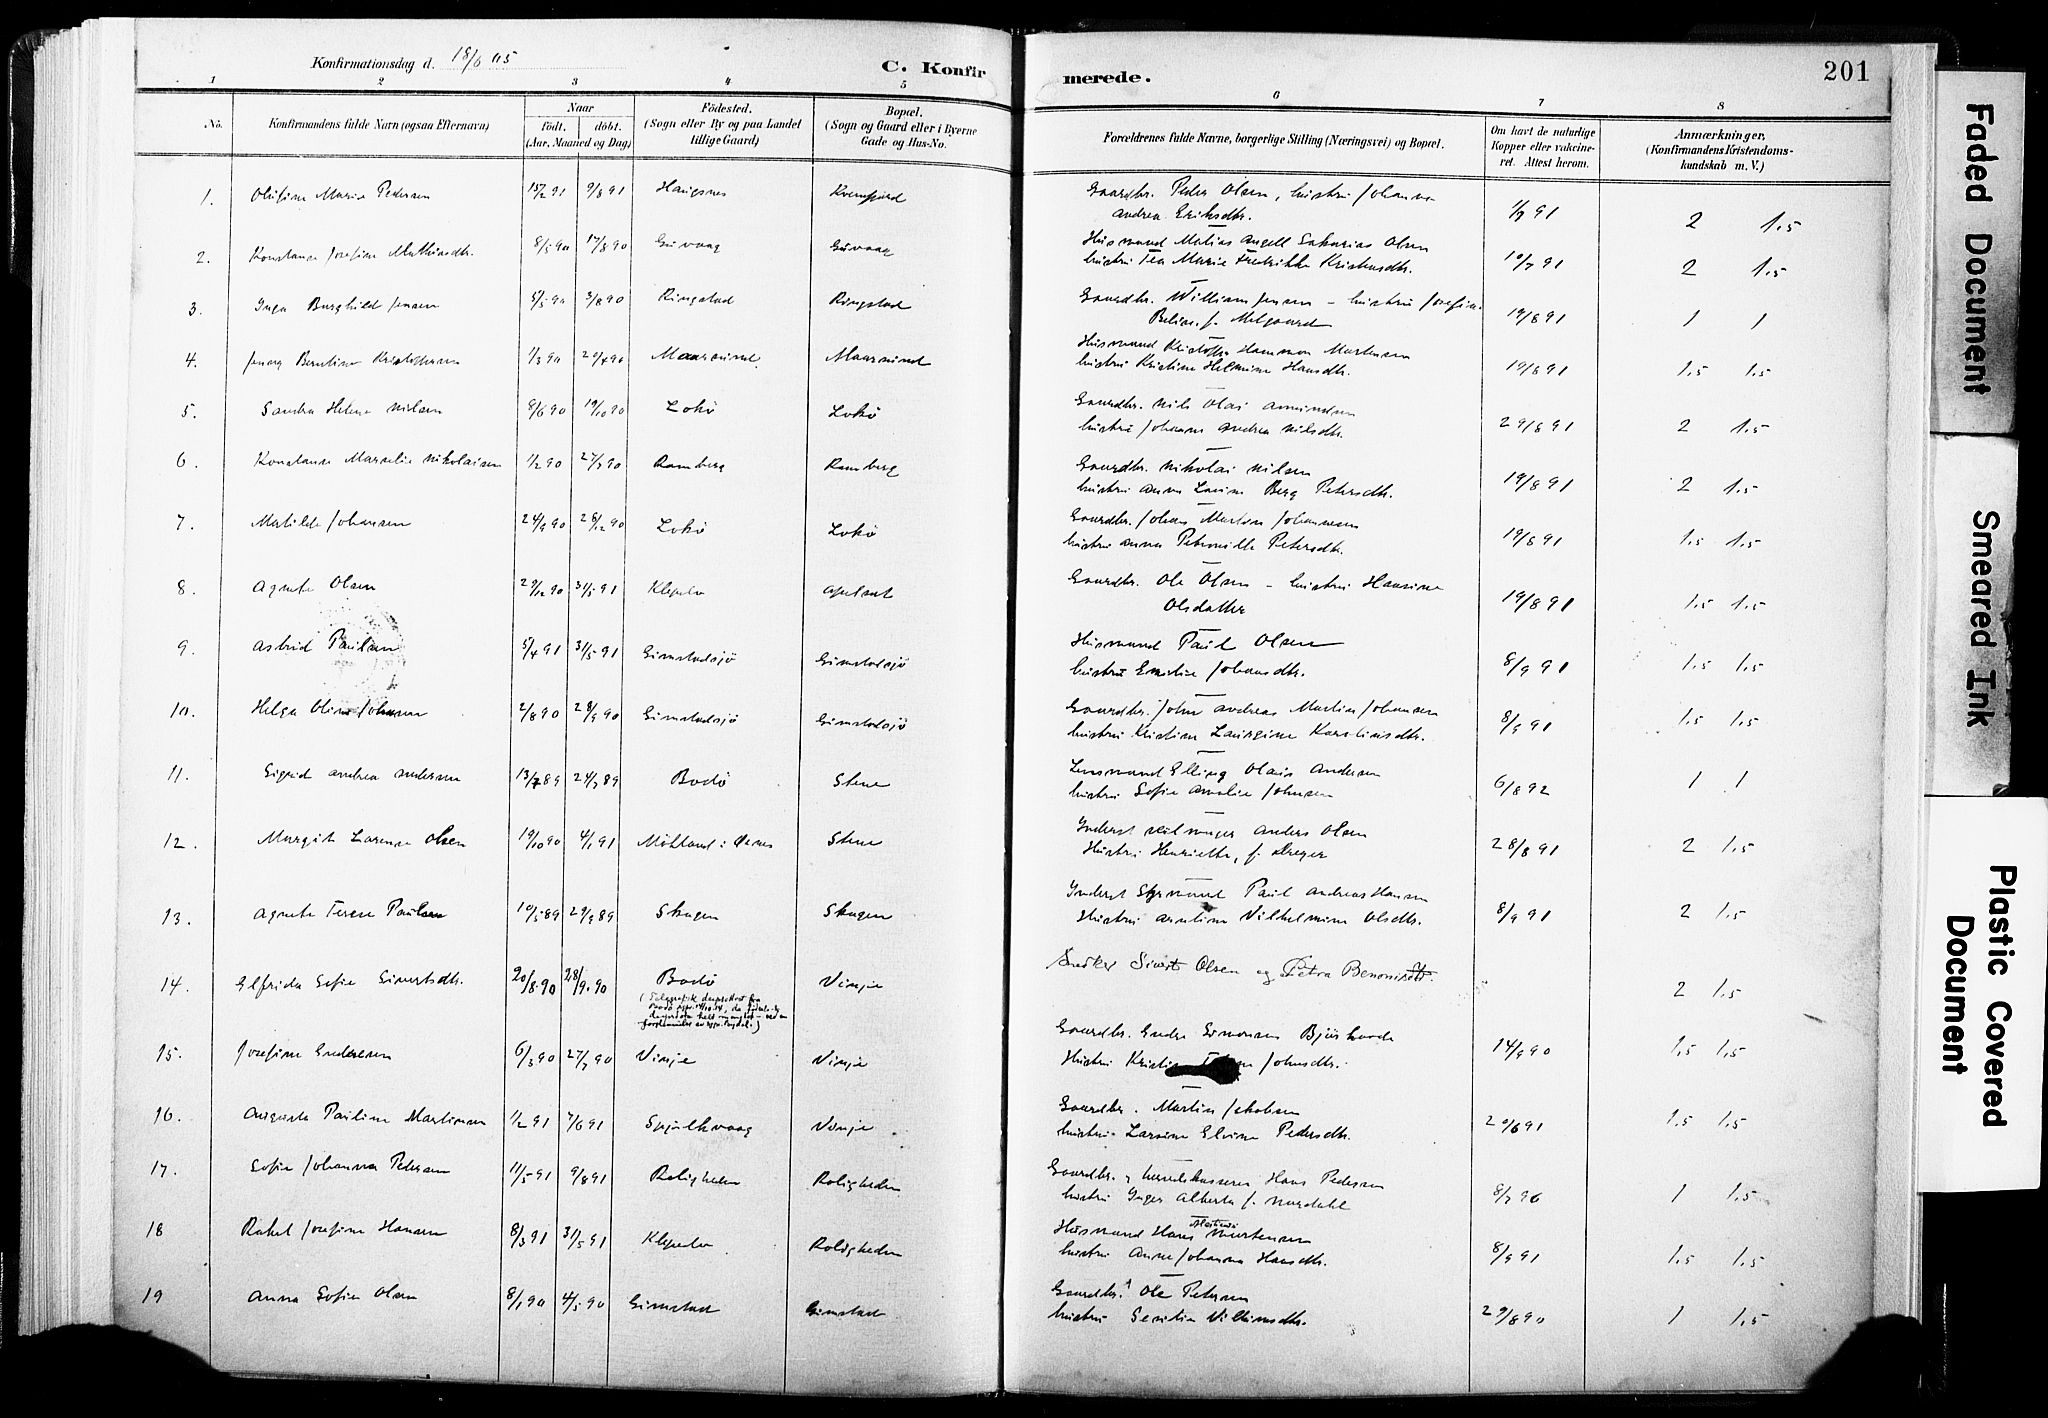 Konfirmationsdag d. 18/6 05
C. Konfirmerede.
201
1 2 3 4 5 6 7 8
No. Konfirmandens fulde Navn (ogsaa Efternavn) Naar födt. döbt. (Aar, Maaned og Dag) Födested. (Sogn eller By og paa Landet tillige Gaard) Bopæl. (Sogn og Gaard eller i Byerne Gade og Hus-No. Forældrenes fulde Navne, borgerlige Stilling (Næringsvei) og Bopæl. Om havt de naturlige Kopper eller vakcineret. Attest herom. Anmærkninger. (Konfirmandens Kristendomskundskab m. V.)
1. Olufine Marie Pedersen 15/2 91 9/8 91 Haugsnes Kvernfjord Gaardbr. Peder Olsen, hustru Johanna
Andrea Eriksdtr. 1/9 91 2 1,5
2. Konstanse Josefine Mathisdtr. 8/5 90 17/8 90 Guvaag Guvaag Husmand Matias Angell Sakarias Olsen
hustru Tea Marie Fredrikke Kristensdtr. 19/7 91 2 1,5
3. Inga Borghild Jensen 5/5 90 3/8 90 Ringstad Ringstad Gaardbr. William Jensen - hustru Josefine
Beline f. Melgaard 19/8 91 1 1
4. Jenny Berntine Kristoffersen 1/3 90 20/4 90 Maarsund Maarsund Husmand Kristoffer Hammon Martensen
hustru Kristine Helmine Hansdtr. 19/8 91 1,5 1,5
5. Sandra Helene Nilsen 8/6 90 19/10 90 Lokö Lokö Gaardbr. Nils Olai Amundsen
hustru Johanna Andrea Nilsdtr. 29/8 91 2 1,5
6. Konstanse Marselie Nikolaisen 1/2 90 27/7 90 Ramberg Ramberg Gaardbr. Nikolai Nilsen
hustru Anna Lovise Berg Petersdtr. 19/8 91 2 1,5
7. Matilde Johansen 24/9 90 26/12 90 Lokö Lokö Gaardbr. Johan Martin Johannesen
hustru Anna Petronille Petersdtr. 19/8 91 1,5 1,5
8. Agnete Olsen 29/12 90 31/5 91 Klepelv Gaardbr. Ole Olsen - hustru Hansine
Olsdatter 19/8 91 1,5 1,5
9. Astrid Paulsen 5/4 91 31/5 91 Gimstadsjö Gimstadsjö Husmand Paul Olsen
hustru Emelie Johansdtr. 8/9 91 1,5 1,5
10. Helga Oline Johansen 2/8 90 28/9 90 Gimstadsjö Gimstadsjö Gaardbr. John Andreas Martin Johansen
hustru Kristine Laurgine Karolinsdtr. 8/9 91 1,5 1,5
11. Sigrid Andrea Andersen 13/7 89 24/7 89 Bodö Stene Lensmand Elling Olaus Andersen
hustru Sofie Amalie Johnsen 6/8 92 1 1
12. Margit Larense Olsen 19/10 90 4/1 91 Möhland i Stene Inderst Anders Olsen
Hustru Henriette, f. Dreyer 28/8 91 2 1,5
13. Agnete Terese Paulsen 10/5 89 29/9 89 Skagen Skagen Inderst Styrmand Paul Andreas Hansen
Hustru Vilhelmine Olsdtr. 8/9 91 2 1,5
14. Elfrida Sofie Sivertsdtr. 20/8 90 28/9 90 Bodö Vinje Snedker Sivert Olsen og Petra Benonisdtr.
2 1,5
15. Josefine Endresen 6/3 90 27/7 90 Vinje Vinje Gaardbr. Endre Simonsen Björkaade
Hustru Johnsdtr. 14/9 90 1,5 1,5
16. Augusta Pauline Martinsen 1/2 91 7/6 91 Spjelkvaag Vinje Gaardbr. Martin Jakobsen
hustru Larsine Elvine Pedersdtr. 20/6 91 1,5 1,5
17. Sofie Johanna Pedersen 11/5 91 9/8 91 Roligheden Roligheden Gaardbr. og herredskasserer Hans Pedersen
hustru Inger Alberta f. Nordahl 8/7 96 1 1,5
18 Rakel Josefine Hansen 8/3 91 31/5 91 Klepelv Roligheden Husmand Hans Martinus Mortensen
hustru Anne Johanna Hansdtr. 8/9 91 1,5 1,5
19 Anna Sofie Olsen 8/1 90 4/5 90 Gimstad Gimstad Gaardbr. Ole Petersen
hustru Vilhelmsdtr. 29/8 90 1 1,5
Faded Document
Smeared Ink
Plastic Covered Document